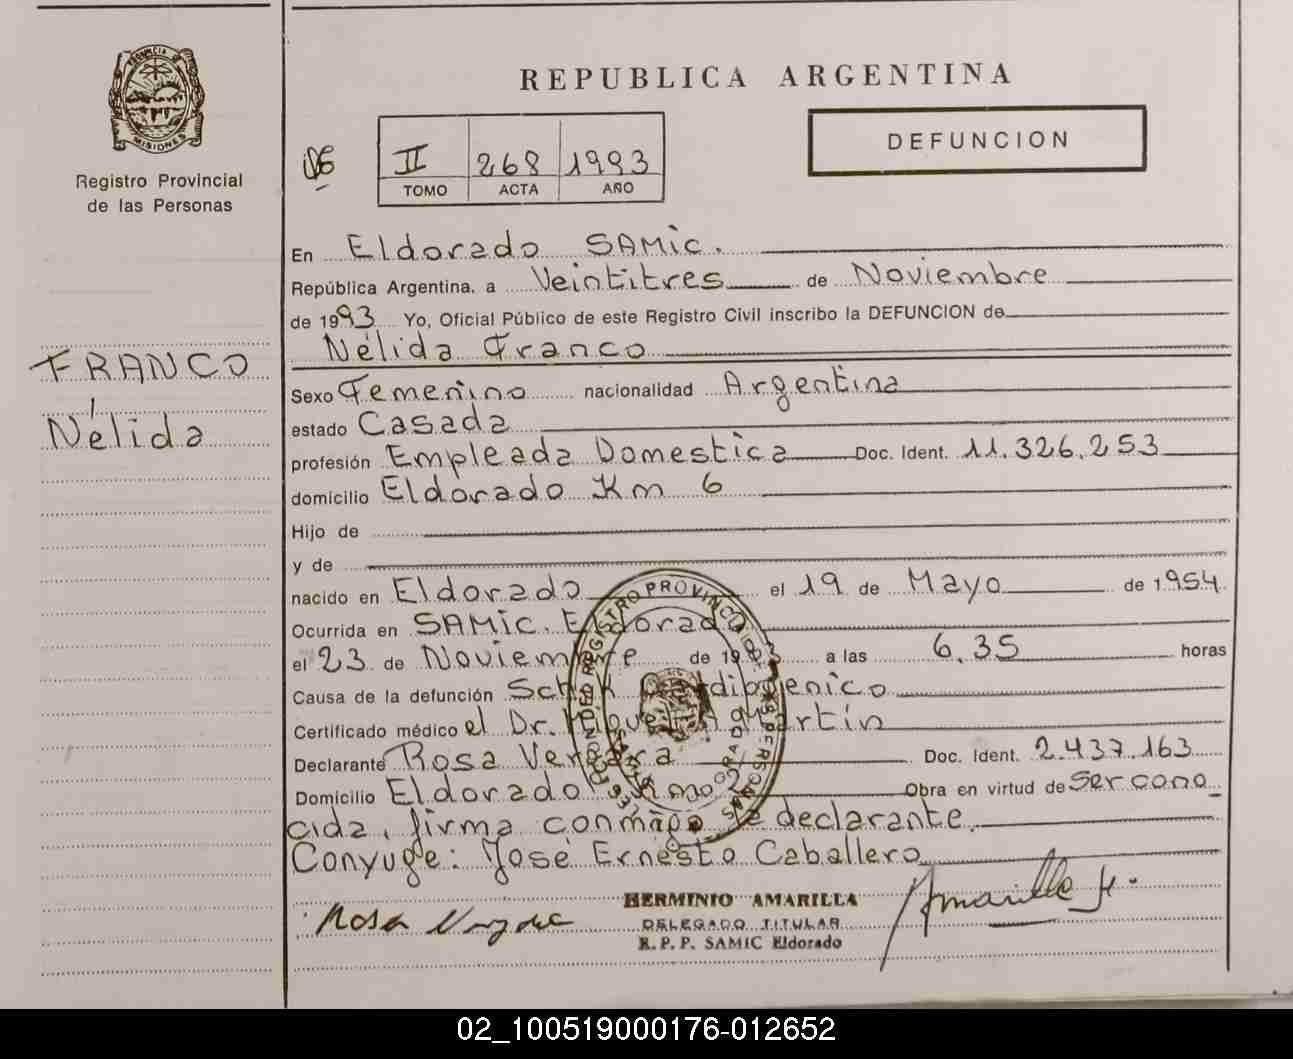 PROVINCIA DE
MISIONES
Registro Provincial
de las Personas
FRANCO
Nélida
REPUBLICA ARGENTINA
DEFUNCION
II 268 1993
TOMO ACTA AÑO
En Eldorado SAMIC.
República Argentina, a Veintitres de Noviembre
de 1993 Yo, Oficial Público de este Registro Civil inscribo la DEFUNCION de
Nélida Franco
Sexo Femenino nacionalidad Argentina
estado Casada
profesión Empleada Domestica Doc. Ident. 11.326.253
domicilio Eldorado Km 6
Hijo de
y de
nacido en Eldorado el 19 de Mayo de 1954
Ocurrida en SAMIC. Eldorado
el 23 de Noviembre de 1993 a las 6.35 horas
Causa de la defunción Schok Cardiogenico
Certificado médico el Dr. Miguel Martín
Declarante Rosa Vergara Doc. Ident. 2.437.163
Domicilio Eldorado Km 2 Obra en virtud de Ser cono
cida, firma conmigo la declarante.
Conyuge: José Ernesto Caballero
HERMINIO AMARILLA
DELEGADO TITULAR
R.P.P. SAMIC Eldorado
Rosa Vergara
Amarilla H.
02_100519000176-012652